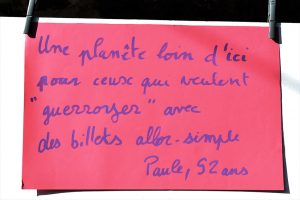 Une planète loin d'ici
pour ceux qui veulent
"guerroyer" avec
des billets aller-simple
Paule, 52 ans